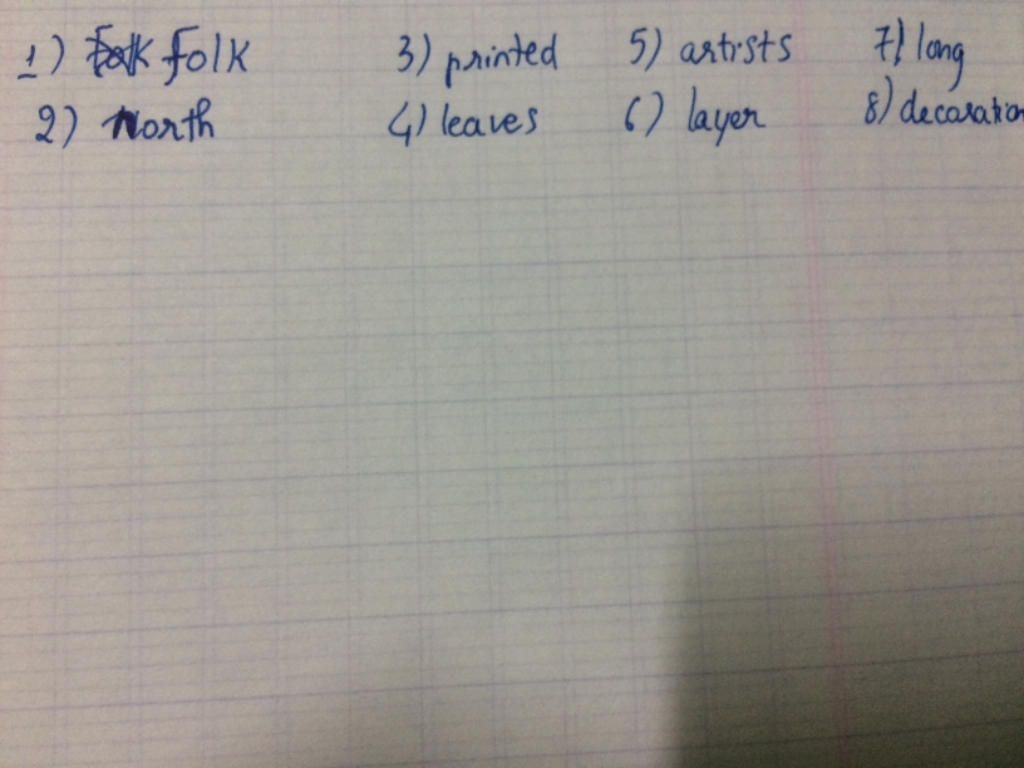 1) folk 3) printed 5) artists 7) long
2) North 4) leaves 6) layer 8) decoration